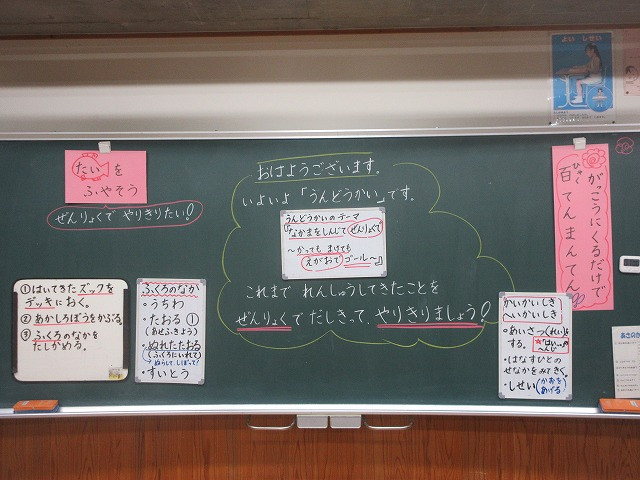 よい しせい
たいを
ふ・やそう
ぜんりょくで やりきりたい!
①はいてきたズックを
デッキにおく。
②あかしろぼうをかぶる。
③ふくろのなかを
たしかめる。
ふくろのなか
・うちわ
・たおる①
(あせふきよう)
・ぬれたたおる
(ふくろにいれて)
・すいとう
おはようございます。
いよいよ「うんどうかい」です。
うんどうかいのテーマ
『なかまをしんじて ぜんりょくで
～かっても まけても
えがおで ゴール～』
これまで れんしゅうしてきたことを
ぜんりょくで だしきって、やりきりましょう!
かいかいしき
～へいかいしき
・あいさつ(れい)を
する。
・はなすひとの
せなかをみてきく。
・しせい(かおを
あげる)
がっこうにくるだけで
百てんまんてん
ひゃく
あさのか